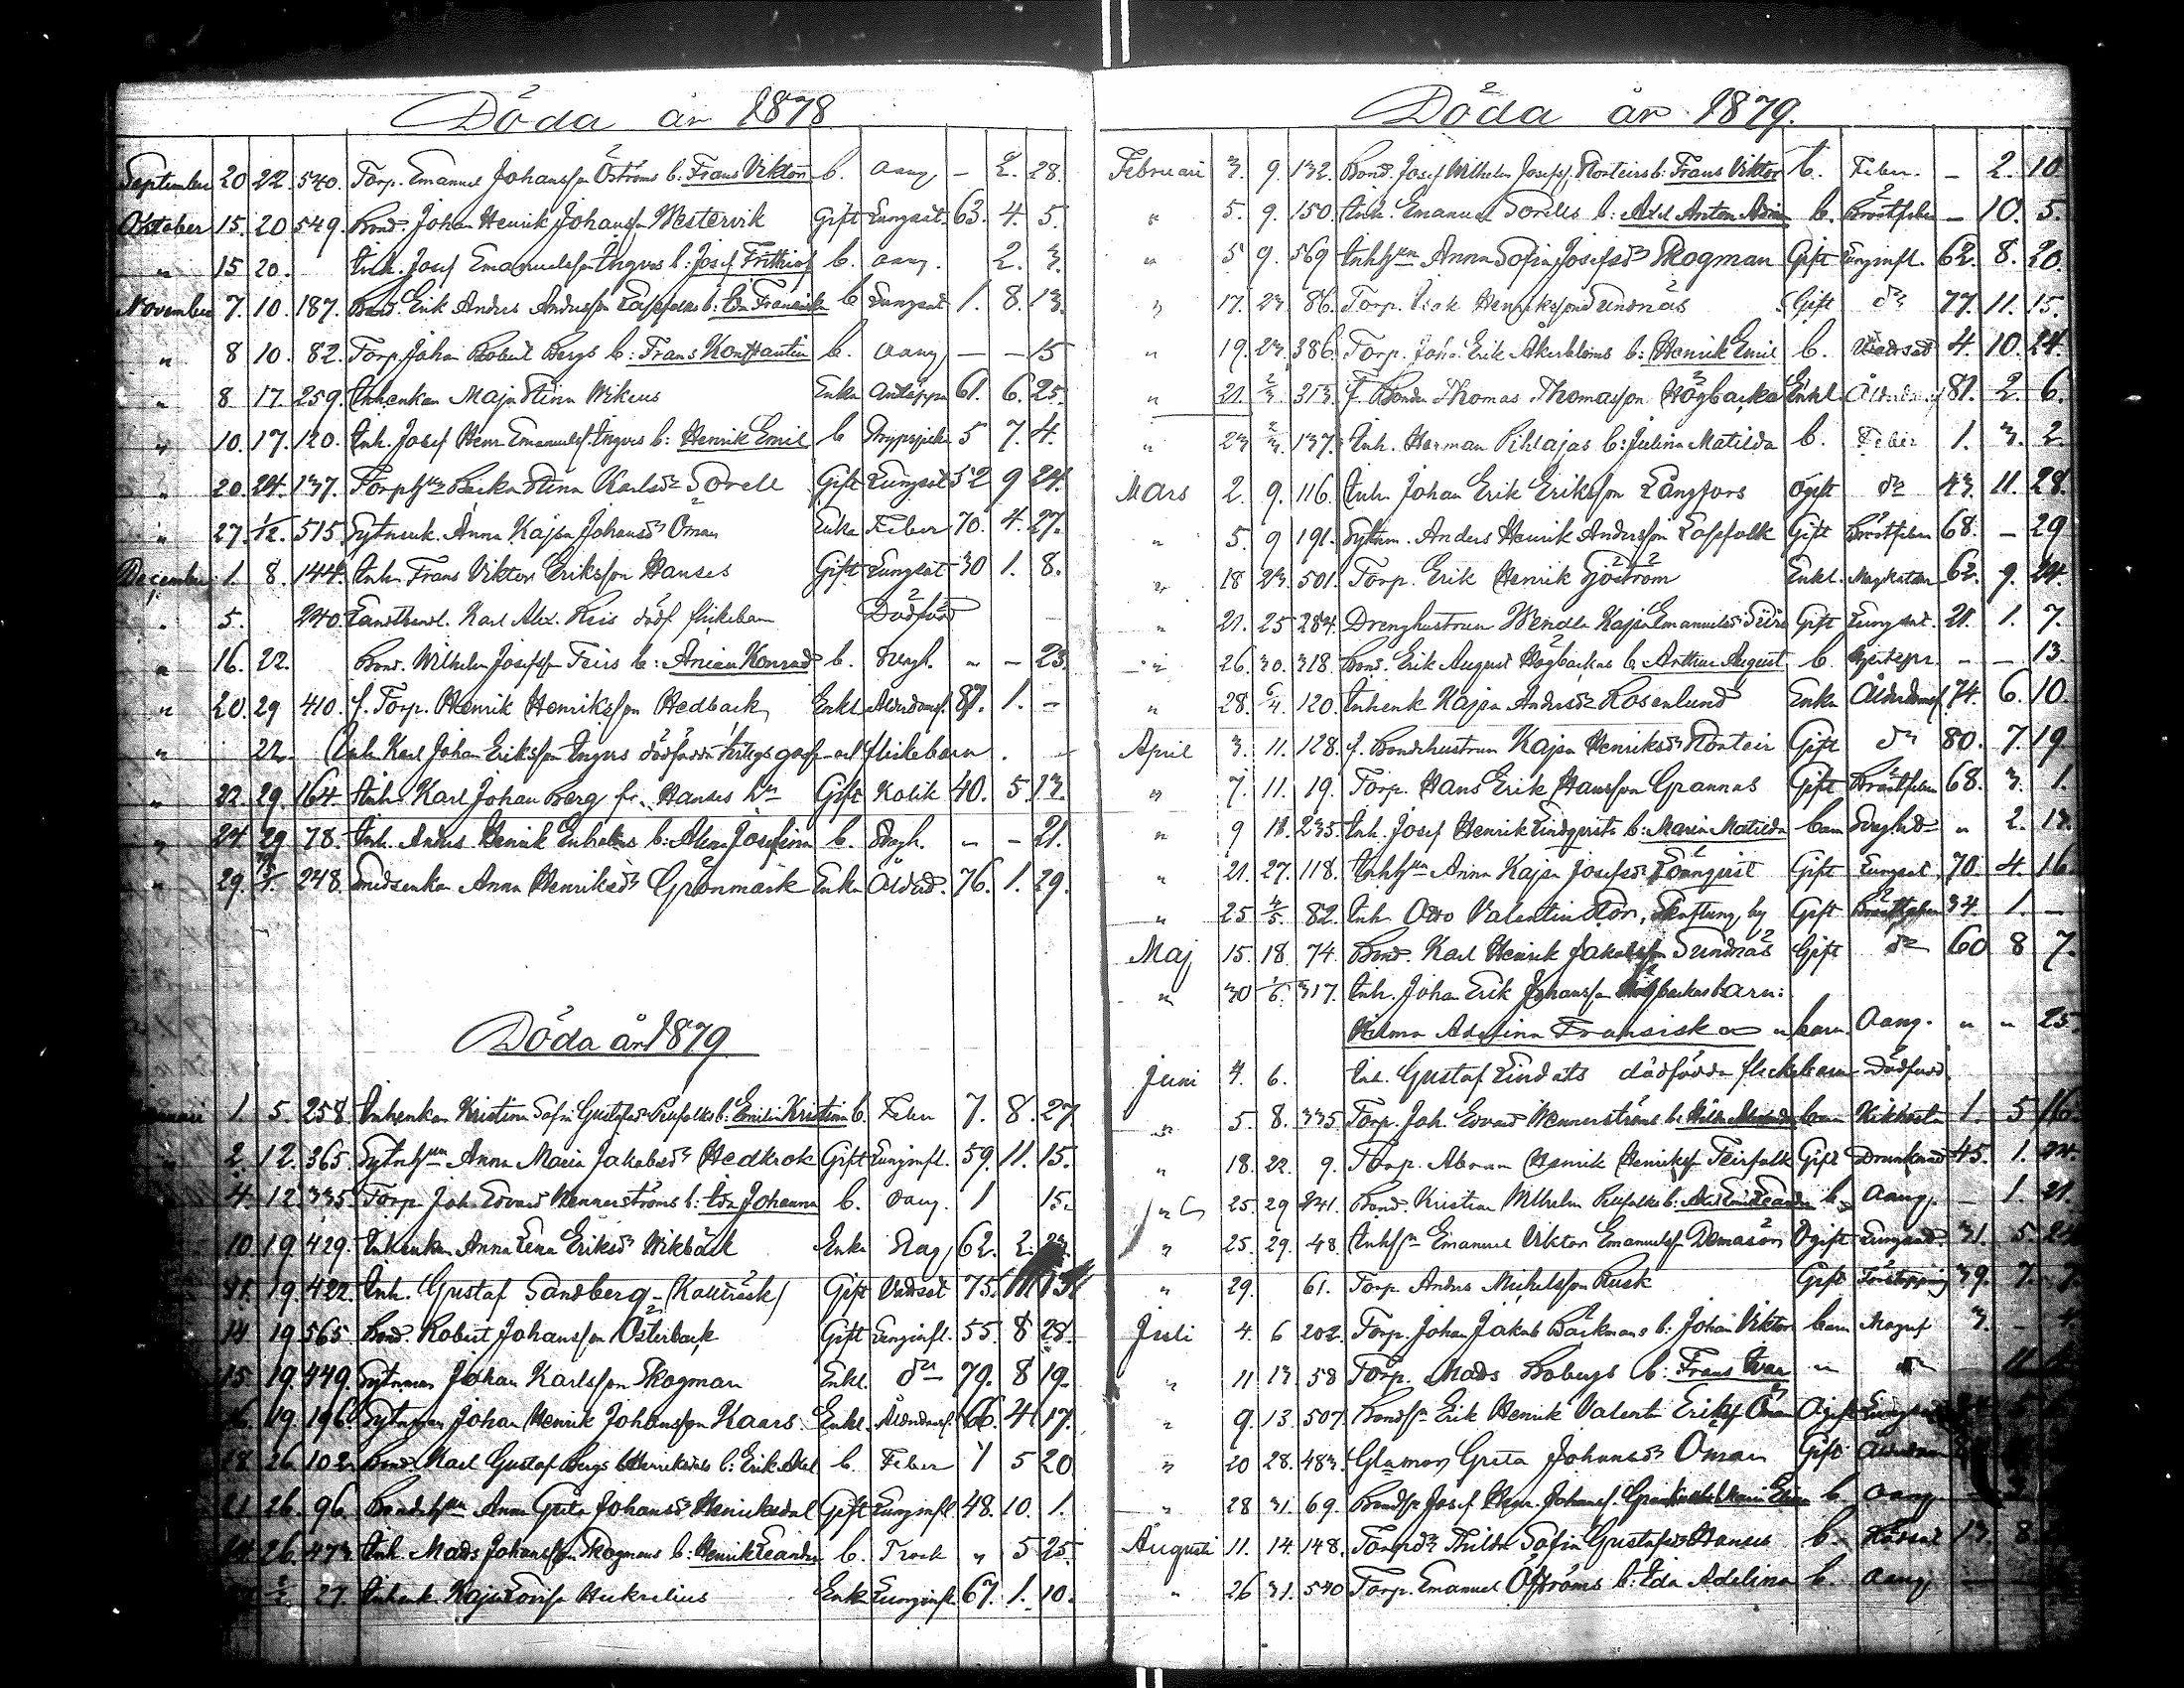 Döda år 1878
September 20 22. 540. Torp. Emanuel Johansson Öströms b: Frans Viktor b. aang. — 2. 28.
Oktober 15. 20. 549. Bond. Johan Henrik Johansson Westervik Gift Lungsot 63. 4. 5.
" 15 20. Inh. Josef Emanuelsson Ingves b: Josef Frithiof b. aang. 2. 3.
November 7. 10. 187. Bond. Erik Anders Andersson b: Ida b Lungsot 1. 8. 13.
" 8 10. 82. Torp. Johan Robert Bergs b: Frans Konstantin b. aang — — 15
" 8 17. 259. Inhenkan Maja Stina Wikius Enka Andtäppa 61. 6. 25.
" 10. 17. 120. Inh. Josef Henr. Emanuelss. Ingves b: Henrik Emil b 5 7. 4.
" 20. 24. 137. Stina Karlsdr Sorell Gift Lungsot 52 9 24.
" 27. 1/12. 515. Anna Kajsa Johansdr Öman Enka Feber 70. 4. 27.
December 1. 8. 144. Inh. Frans Viktor Eriksson Hanses Gift Lungsot 30 1. 8.
" 5. 240. Landthandl. Karl Alex. Reis dödf. flickebarn Dödfödd
" 16. 22. Bond. Wilhelm Josefsson Teirs b: Konrad b. Slagf. " — 23.
" 20. 29 410. f. Torp. Henrik Henriksson Hedback Enkl. Ålderdomsf. 87. 1. —
" 22. Inh. Karl Johan Eriksson Ingves dödfödda gosse och flickebarn
" 22. 29. 164. Inh. Karl Johan Berg fr. Hanses hn Gift Kolik 40. 5. 13.
" 24. 29 78. Inh. Anders Henrik b: Alina Josefina b. Slagf. " — 21.
" 29. 248. Anna Henriksdr Grönmark Enka Ålderd. 76. 1. 29.
Döda år 1879
1. 5. 258. Inhenkan Kristina Sofia Gustafsdr b: Emilia Kristina b. Feber 7. 8. 27
" 2. 12. 365. Anna Maria Jakobsdr Hedkrok Gift Lunginfl. 59. 11. 15.
4. 12. 335. Torp. Joh. Edvard Wennerströms b: Ida Johanna b. aang. 1 15.
10. 19. 429. Inhenkan Anna Lena Eriksdr Wikbäck Enka Slag 62. 2.
19. 422. Inh. Gustaf Sandberg (Kallträsk) Gift 75.
14 19 565 Bond. Robert Johansson Österback Gift Lunginfl. 55. 8 28.
15 19. 449. Sytnman Johan Karlsson Skogman Enkl. do 79. 8 19.
16. 19. 196. Sytnman Johan Henrik Johansson Kaars Enkl. Ålderdomsf. 66. 4. 17.
18 26 102. Bond. Karl Gustaf Bergs b: Erik Axel b. Feber 1 5 20
21 26. 96. Bondehn Anna Greta Johansdr Henriksdal Gift Lunginfl. 48. 10. 1.
26. 473 Inh. Mads Johansson Skogmans b: Henrik Leander b. Trosk " 5 25.
27. Inhenk. Kajsa Enka Lunginfl. 67. 1. 10.
Döda år 1879.
Februari 3. 9. 132. Bond. Josef Wilhelm Josefss. Norteirs b: Frans Viktor b. Feber. — 2. 10
" 5. 9. 150. Inh. Emanuel Sorells b: Axel Anton b. Bröstfeber — 10. 5.
" 5 9. 569 Inhhn Anna Sofia Josefsdr Skogman Gift Lunginfl. 62. 8. 20.
" 17. 23 86. Torp. Isak Henriksson Sundnäs Gift do 77. 11. 15.
" 19. 23. 386. Torp. Joh. Erik Åkerbloms b: Henrik Emil b. 4. 10. 24.
" 21. 2/3. 313. f. Bonden Thomas Thomasson Högbacka Enkl 81. 2. 6.
" 23 2/3. 137. Inh. Herman Pihlajas b: Julina Matilda b. Feber 1. 3. 2
Mars 2. 9. 116. Inh. Johan Erik Eriksson Långfors Ogift do 43. 11. 28.
" 5. 9 191. Sytnm. Anders Henrik Andersson Lassfolk Gift Bröstfeber 68. — 29
" 18 23. 501. Torp. Erik Henrik Sjöström Enkl. 62. 9. 24.
" 21. 25 284. Drenghustrun Wendla Kajsa Emanuelsdr Gift Lungsot. 21. 1. 7.
" 26. 30. 318. Bond. Erik August Högbackas b. Arthur August b. " — 13.
" 28. 6/4. 120. Inhenk. Kajsa Andersdr Rosenlund Enka Ålderdomsf. 74. 6. 10.
April 3. 11. 128. f. Bondehustrun Kajsa Henriksdr Norteir Gift do 80. 7. 19
" 7. 11. 19. Torp. Hans Erik Hansson Grannas Gift Bröstfeber 68. 3. 1.
" 9 18. 235. Inh. Josef Henrik Lindqvists b: Maria Matilda barn " 2. 13.
" 21. 27. 118. Inhhn Anna Kajsa Josefsdr Lönnqvist Gift Lungsot 70. 4. 16.
" 25 4/5. 82. Inh. Otto Valentin Stor, Skaftung by Gift Bröstfeber 34. 1. —
Maj 15. 18. 74. Bond. Karl Henrik Jakobsson Sundnäs Gift do 60 8 7.
" 30 1/6. 317. Inh. Johan Erik Johansson Högbackas barn:
Hilma Adelina Fransiska " barn Aang. " " 25.
Juni 4. 6. Inh. Gustaf Lindals dödfödda flickebarn Dödfödd
" 5. 8. 335. Torp. Joh. Edvard Wennerströms b: barn Kikhosta 1. 5 16.
" 18. 22. 9. Torp. Abram Henrik Henriksson Teirfolk Gift Drunknad 45. 1. 24.
" 25. 29 241. Bond. Kristian Wilhelm b: b. Aang. — 1. 21.
" 25. 29. 48. Inhsn Emanuel Viktor Emanuelsson Domars Ogift 31. 5 24
" 29. 61. Torp. Anders Michelsson Rusk Gift Förstoppning 39. 7. 7.
Juli 4. 6 202. Torp. Johan Jakob Backmans b: Johan Viktor barn Magref 3. —
" 11 13. 58 Torp. Mads Bobergs b: Frans Ivar " " 11
" 9. 13. 507. Bondsn Erik Henrik Valentin Erikss. Öman Ogift
" 20 28. 483. Greta Johansdr Öman Gift
" 28 31. 69. Bondsn Josef Henr. Johanss. b. aang
Augusti 11. 14. 148. Thilda Sofia Gustafsdr Hanses b. 13. 8
" 26 31. 540 Torp. Emanuel Öströms b: Ida Adelina b. aang